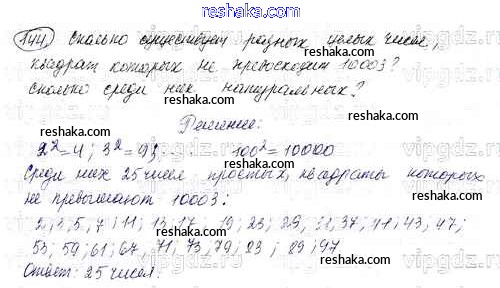 reshaka.com
144. Сколько существует разных целых чисел,
квадрат которых не превосходит 10003?
Сколько среди них натуральных?
reshaka.com
Решение:
reshaka.com
2²=4; 3²=9; 100²=10000
reshaka.com
Среди них 25 чисел простых, квадраты которых
не превышают 10003:
reshaka.com
2; 3; 5; 7; 11; 13; 17; 19; 23; 29; 31; 37; 41; 43; 47;
reshaka.com
53; 59; 61; 67; 71; 73; 79; 83; 89; 97
Ответ: 25 чисел.
reshaka.com